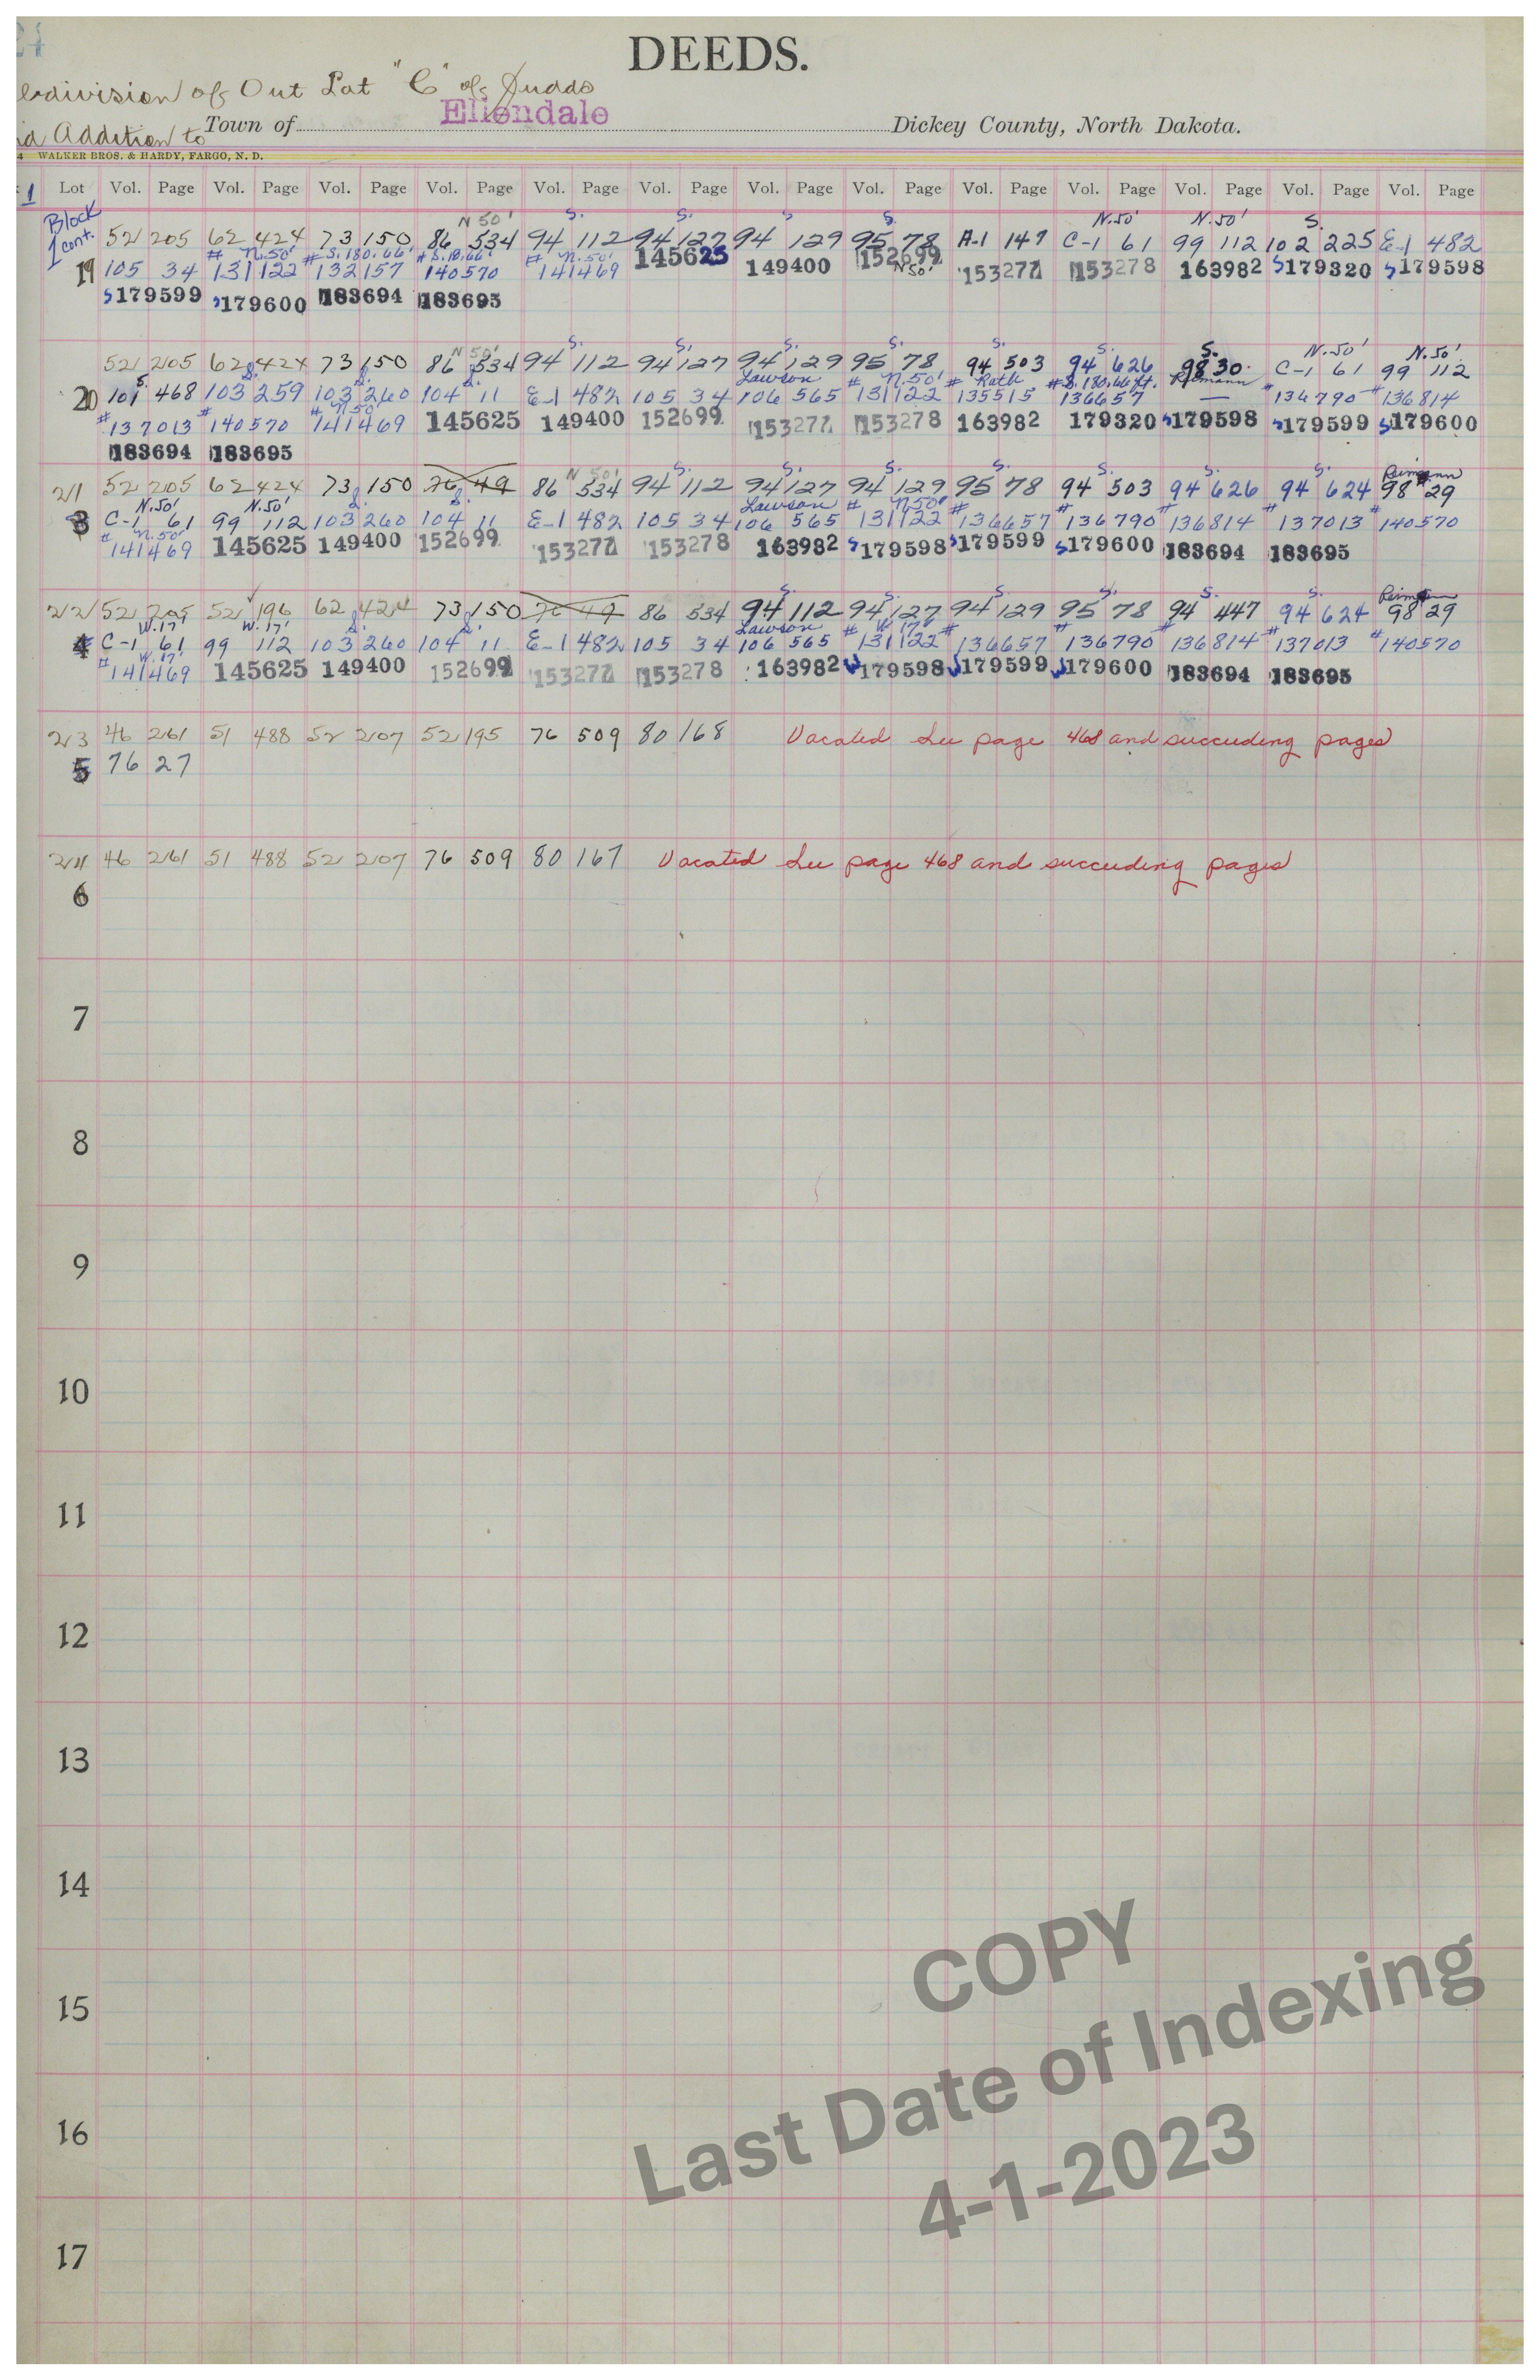 DEEDS.
bdivision of Out Lot "C" of Judds
Ellendale
Addition to Town of Dickey County, North Dakota.
4 WALKER BROS. & HARDY, FARGO, N. D.
1 Lot Vol. Page Vol. Page Vol. Page Vol. Page Vol. Page Vol. Page Vol. Page Vol. Page Vol. Page Vol. Page Vol. Page Vol. Page Vol. Page
Block N 50' S. S. S S. N.50' N.50' S.
1 cont. 52 205 62 424 73 150 86 534 94 112 94 127 94 129 95 78 A-1 147 C-1 61 99 112 102 225 E-1 482
# N.50' # S.180.66' # S.18.66' # N.50'
19 105 34 131122 132157 140570 141469 145625 149400 152699 153277 153278 163982 S179320 S179598
N50'
S179599 S179600 183694 183695
N 50' S. S. S. S. S. S. S. N.50' N.50'
52 205 62 424 73 150 86 534 94 112 94 127 94 129 95 78 94 503 94 626 98 30 C-1 61 99 112
S. S. S. S. Lawson # N.50' # Rath # S.180.66 ft. Reimann # #
20 101 468 103 259 103 260 104 11 E-1 482 105 34 106 565 131122 135515 136657 — 136790 136814
# # # N.50'
137013 140570 141469 145625 149400 152699 153277 153278 163982 179320 S179598 S179599 S179600
183694 183695
N 50' S. S. S. S. S. S. S. Reimann
21 52 205 62 424 73 150 76 49 86 534 94 112 94 127 94 129 95 78 94 503 94 626 94 624 98 29
N.50' N.50' S. S. Lawson # N.50' # # # # #
3 C-1 61 99 112 103 260 104 11 E-1 482 105 34 106 565 131122 136657 136790 136814 137013 140570
# N.50'
141469 145625 149400 152699 153277 153278 163982 S179598 S179599 S179600 183694 183695
S. S. S. S. S. Reimann
22 52 205 52 196 62 424 73 150 76 49 86 534 94 112 94 127 94 129 95 78 94 447 94 624 98 29
W.17' W.17' S. S. Lawson # W.17' # # # # #
4 C-1 61 99 112 103 260 104 11 E-1 482 105 34 106 565 131122 136657 136790 136814 137013 140570
# W.17'
141469 145625 149400 152699 153277 153278 163982 179598 179599 179600 183694 183695
23 46 261 51 488 52 207 52 195 76 509 80 168 Vacated See page 468 and succeeding pages
5 76 27
24 46 261 51 488 52 207 76 509 80 167 Vacated See page 468 and succeeding pages
6
7
8
9
10
11
12
13
14
15
16
17
COPY
Last Date of Indexing
4-1-2023